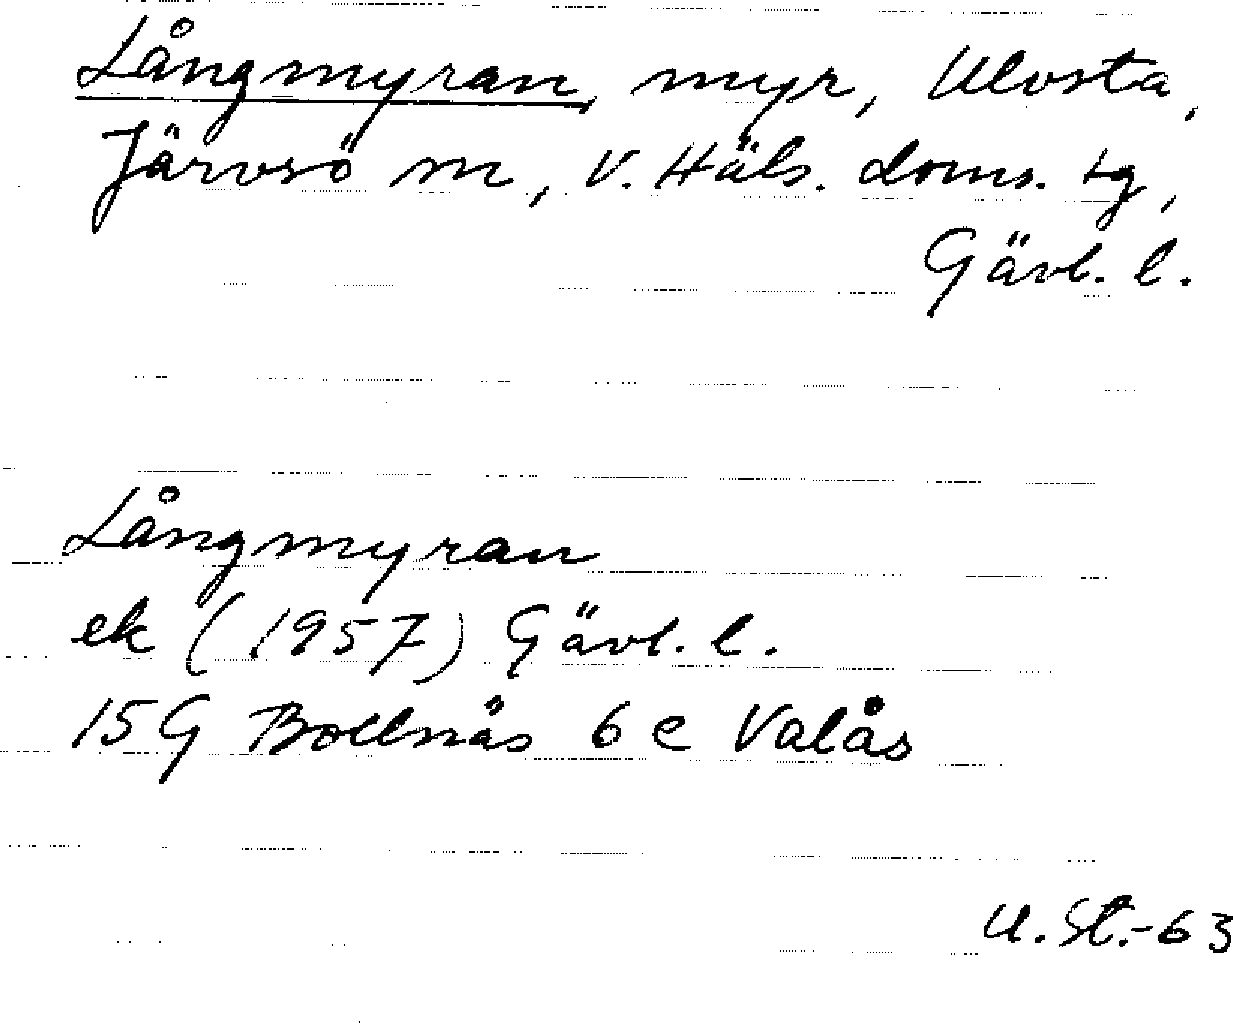 Långmyran, myr, Ulvsta,
Järvsö sn, V. Häls. doms. tg,
Gävl. l.
Långmyran
ek (1957) Gävl. l.
15G Bollnäs 6e Valås
U. St.-63